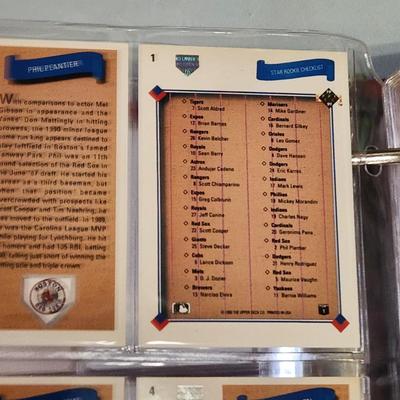 PHIL PLANTIER
With comparisons to actor Mel
Gibson in appearance and the
Yanks' Don Mattingly in hitting
prowess, the 1990 minor league
home run king appears destined to
play leftfield in Boston's famed
Fenway Park. Phil was an 11th
round selection of the Red Sox in
June '87 draft. He started his
career as a third baseman, but
when the position became
overcrowded with prospects like
Scott Cooper and Tim Naehring, he
was moved to the outfield in 1989.
was the Carolina League MVP
while playing for Lynchburg. He hit
homers and had 105 RBI, batting
.300, falling just short of winning the
hitting title and triple crown.
BOSTON
RED SOX
1
STAR ROOKIE CHECKLIST
Tigers
7 Scott Aldred
Expos
17 Brian Barnes
Rangers
26 Kevin Belcher
Royals
10 Sean Berry
Astros
23 Andujar Cedeno
Rangers
8 Scott Chiamparino
Expos
15 Greg Colbrunn
Royals
27 Jeff Conine
Red Sox
22 Scott Cooper
Giants
25 Steve Decker
Cubs
6 Lance Dickson
Mets
3 D.J. Dozier
Brewers
13 Narciso Elvira
Mariners
14 Mike Gardiner
Cardinals
16 Bernard Gilkey
Orioles
9 Leo Gomez
Dodgers
4 Dave Hansen
Dodgers
24 Eric Karros
Indians
17 Mark Lewis
Phillies
18 Mickey Morandini
Indians
19 Charles Nagy
Cardinals
20 Geronimo Pena
Red Sox
2 Phil Plantier
Dodgers
21 Henry Rodriguez
Red Sox
5 Maurice Vaughn
Yankees
11 Bernie Williams
© 1990 THE UPPER DECK CO. PRINTED IN USA
4